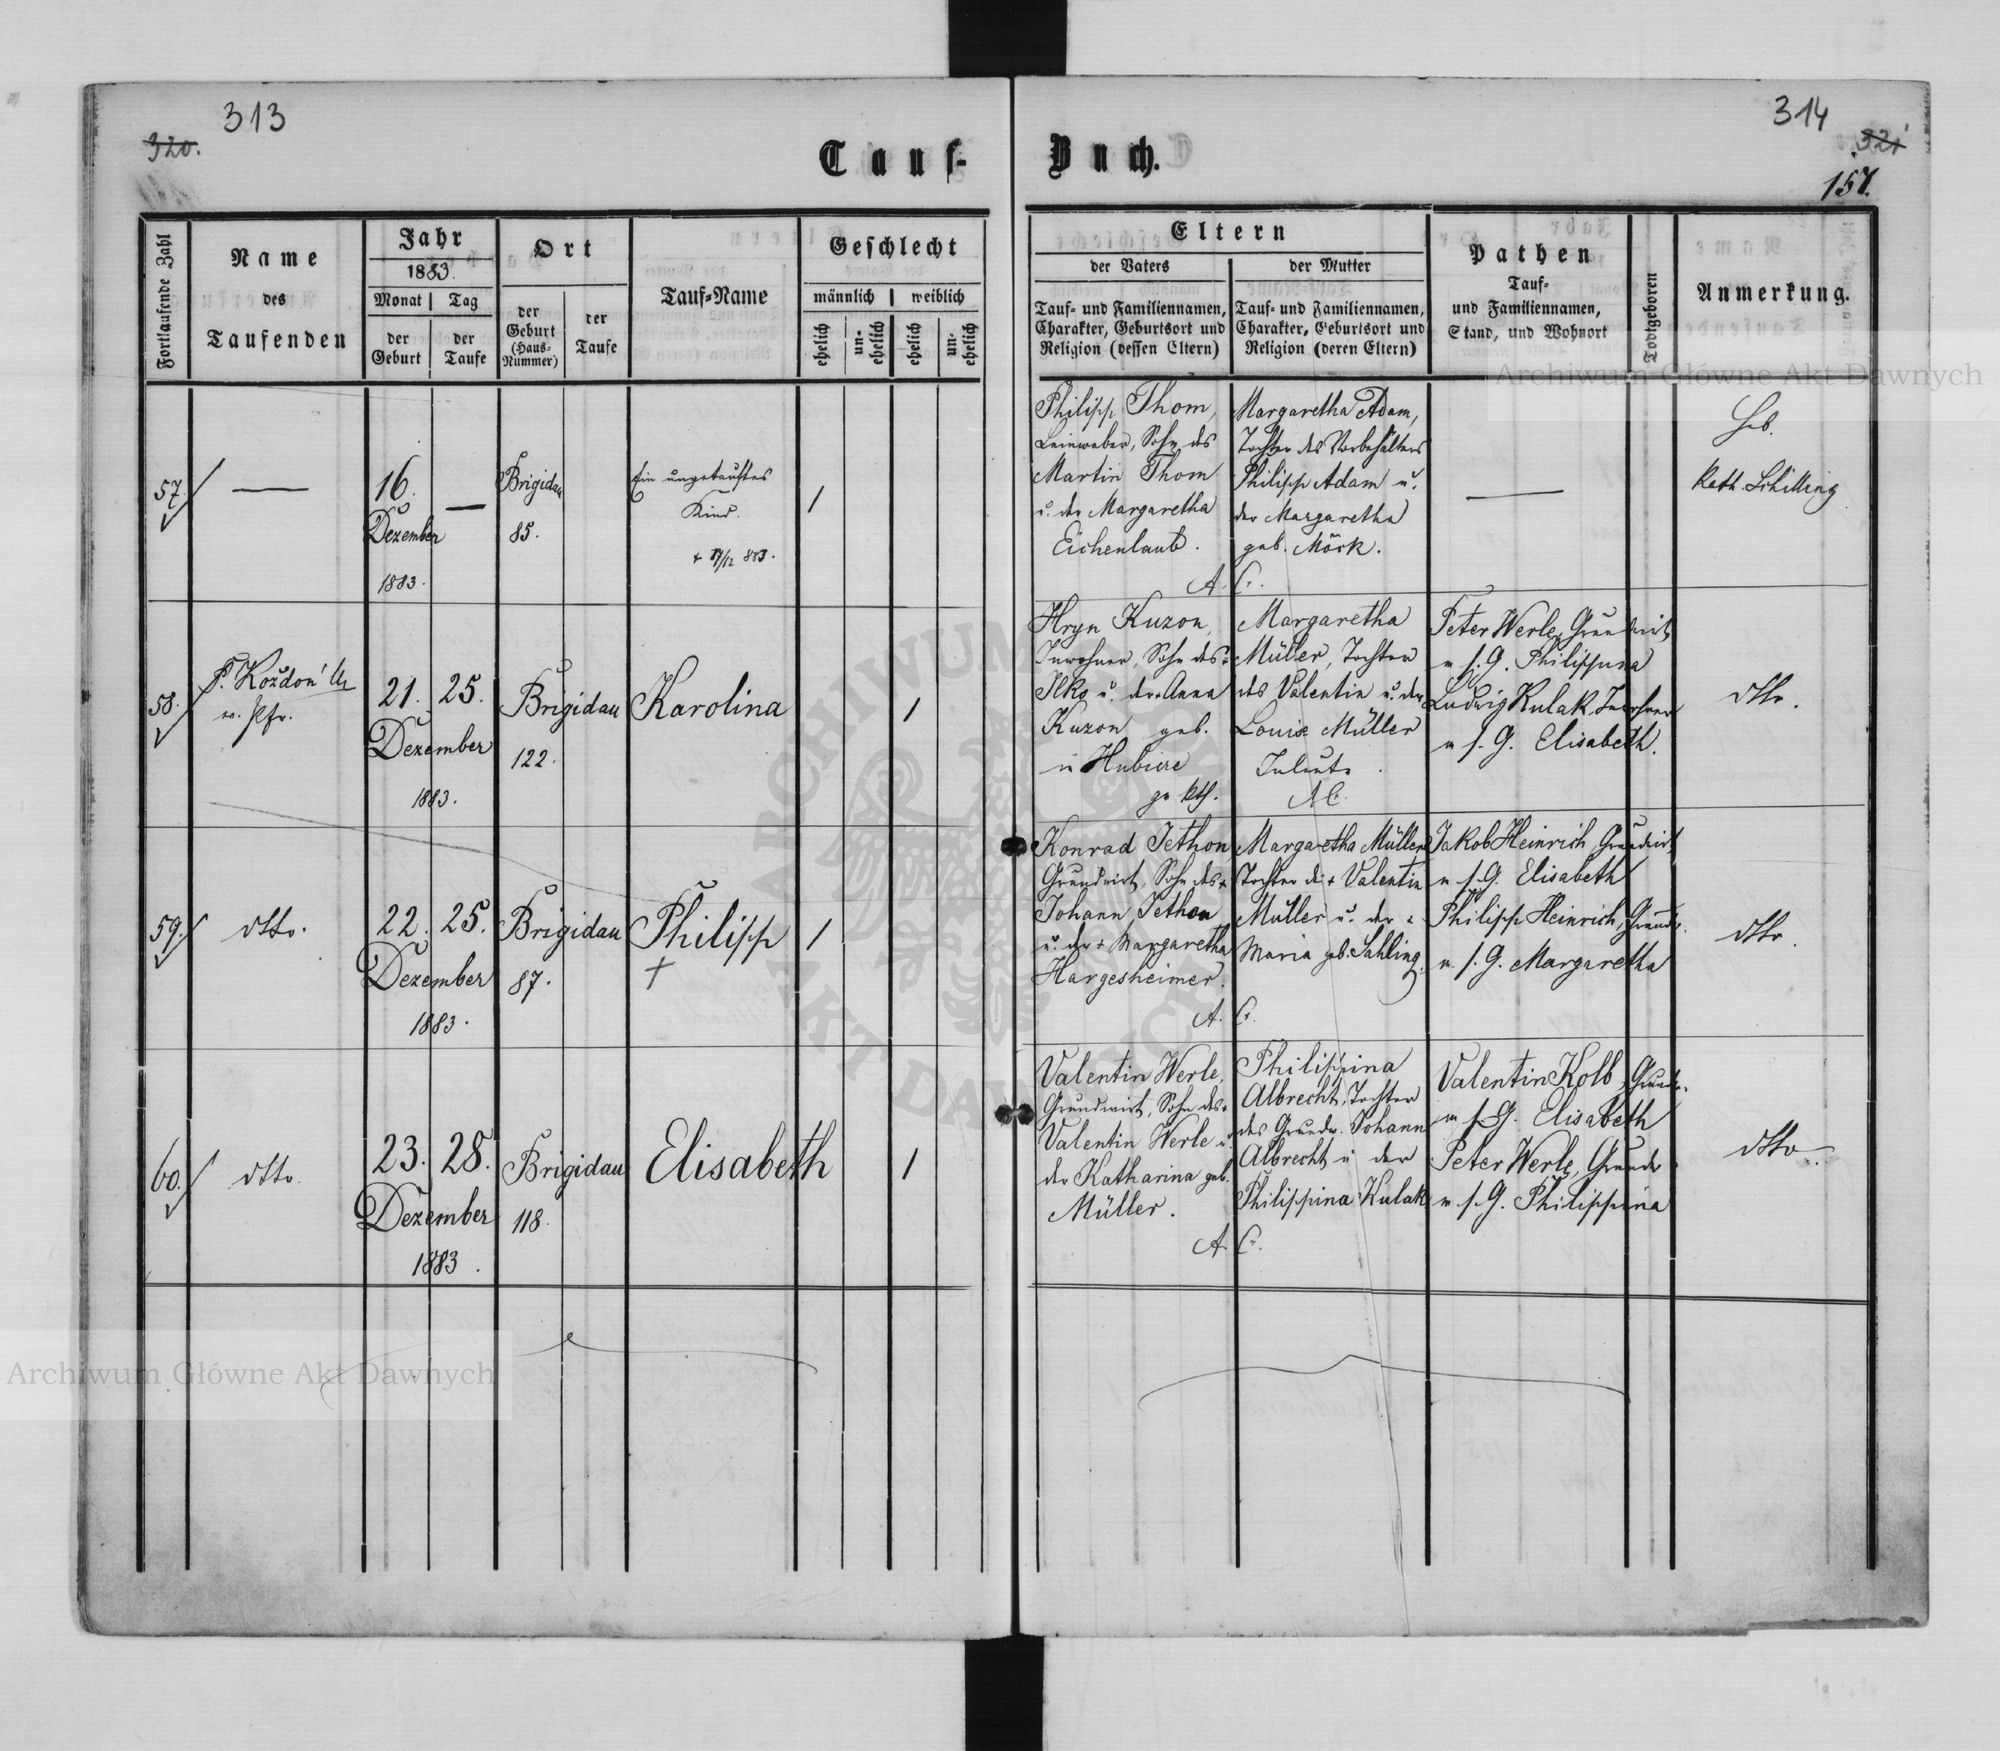 313
320.
314
321
157.
Tauf-
Buch.
Fortlaufende Zahl
Name
des
Taufenden
Jahr
1883.
Monat
Tag
der
Geburt
der
Taufe
Ort
der
Geburt
(Haus-
Nummer)
der
Taufe
Tauf-Name
Geschlecht
männlich
weiblich
ehelich
un-
ehelich
ehelich
un-
ehelich
Eltern
der Vaters
der Mutter
Tauf- und Familiennamen,
Charakter, Geburtsort und
Religion (dessen Eltern)
Tauf- und Familiennamen,
Charakter, Geburtsort und
Religion (deren Eltern)
Pathen
Tauf-
und Familiennamen,
Stand, und Wohnort
Todtgeboren
Anmerkung.
57.
—
16.
Dezember
1883.
—
Brigidau
85.
Ein ungetauftes
Kind.
/
Philipp Thom,
Leinweber, Sohn des
Martin Thom
u. der Margaretha
Eichenlaub.
Margaretha Adam,
Tochter des Vorbehälters
Philipp Adam u.
der Margaretha
geb. Möck.
A. C.
—
Heb.
Kath. Schilling
58.
F. Koždoń
ev. Pfr.
21. 25.
Dezember
1883.
Brigidau
122.
Karolina
/
Hryn Kuzon,
Inwohner, Sohn des +
Ilko u. der + Anna
Kuzon geb.
in Hubicze
gr. kth.
Margaretha
Müller, Tochter
des Valentin u. der
Louise Müller
Inleute
A C.
Peter Werle, Grundwirt
u s. G. Philippina
Ludwig Kulak Inwohner
u s. G. Elisabeth.
dtto.
59.
dtto.
22. 25.
Dezember
1883.
Brigidau
87.
Philipp
+
/
Konrad Jethon,
Grundwirt, Sohn des +
Johann Jethon
u. der + Margaretha
Hargesheimer.
Margaretha Müller
Tochter des + Valentin
Müller u. der +
Maria geb. Sahling.
A. C.
Jakob Heinrich, Grundwirt,
u s. G. Elisabeth
Philipp Heinrich, Grundw.
u. s. G. Margaretha
dtto.
60.
dtto.
23. 28.
Dezember
1883.
Brigidau
118.
Elisabeth
/
Valentin Werle,
Grundwirt, Sohn des +
Valentin Werle u.
der Katharina geb.
Müller.
Philippina
Albrecht, Tochter
des Grundw. Johann
Albrecht u der
Philippina Kulak
A. C.
Valentin Kolb, Grundw.
u s. G. Elisabeth
Peter Werle, Grundw
u s. G. Philippina
dtto.
Archiwum Główne Akt Dawnych
Archiwum Główne Akt Dawnych